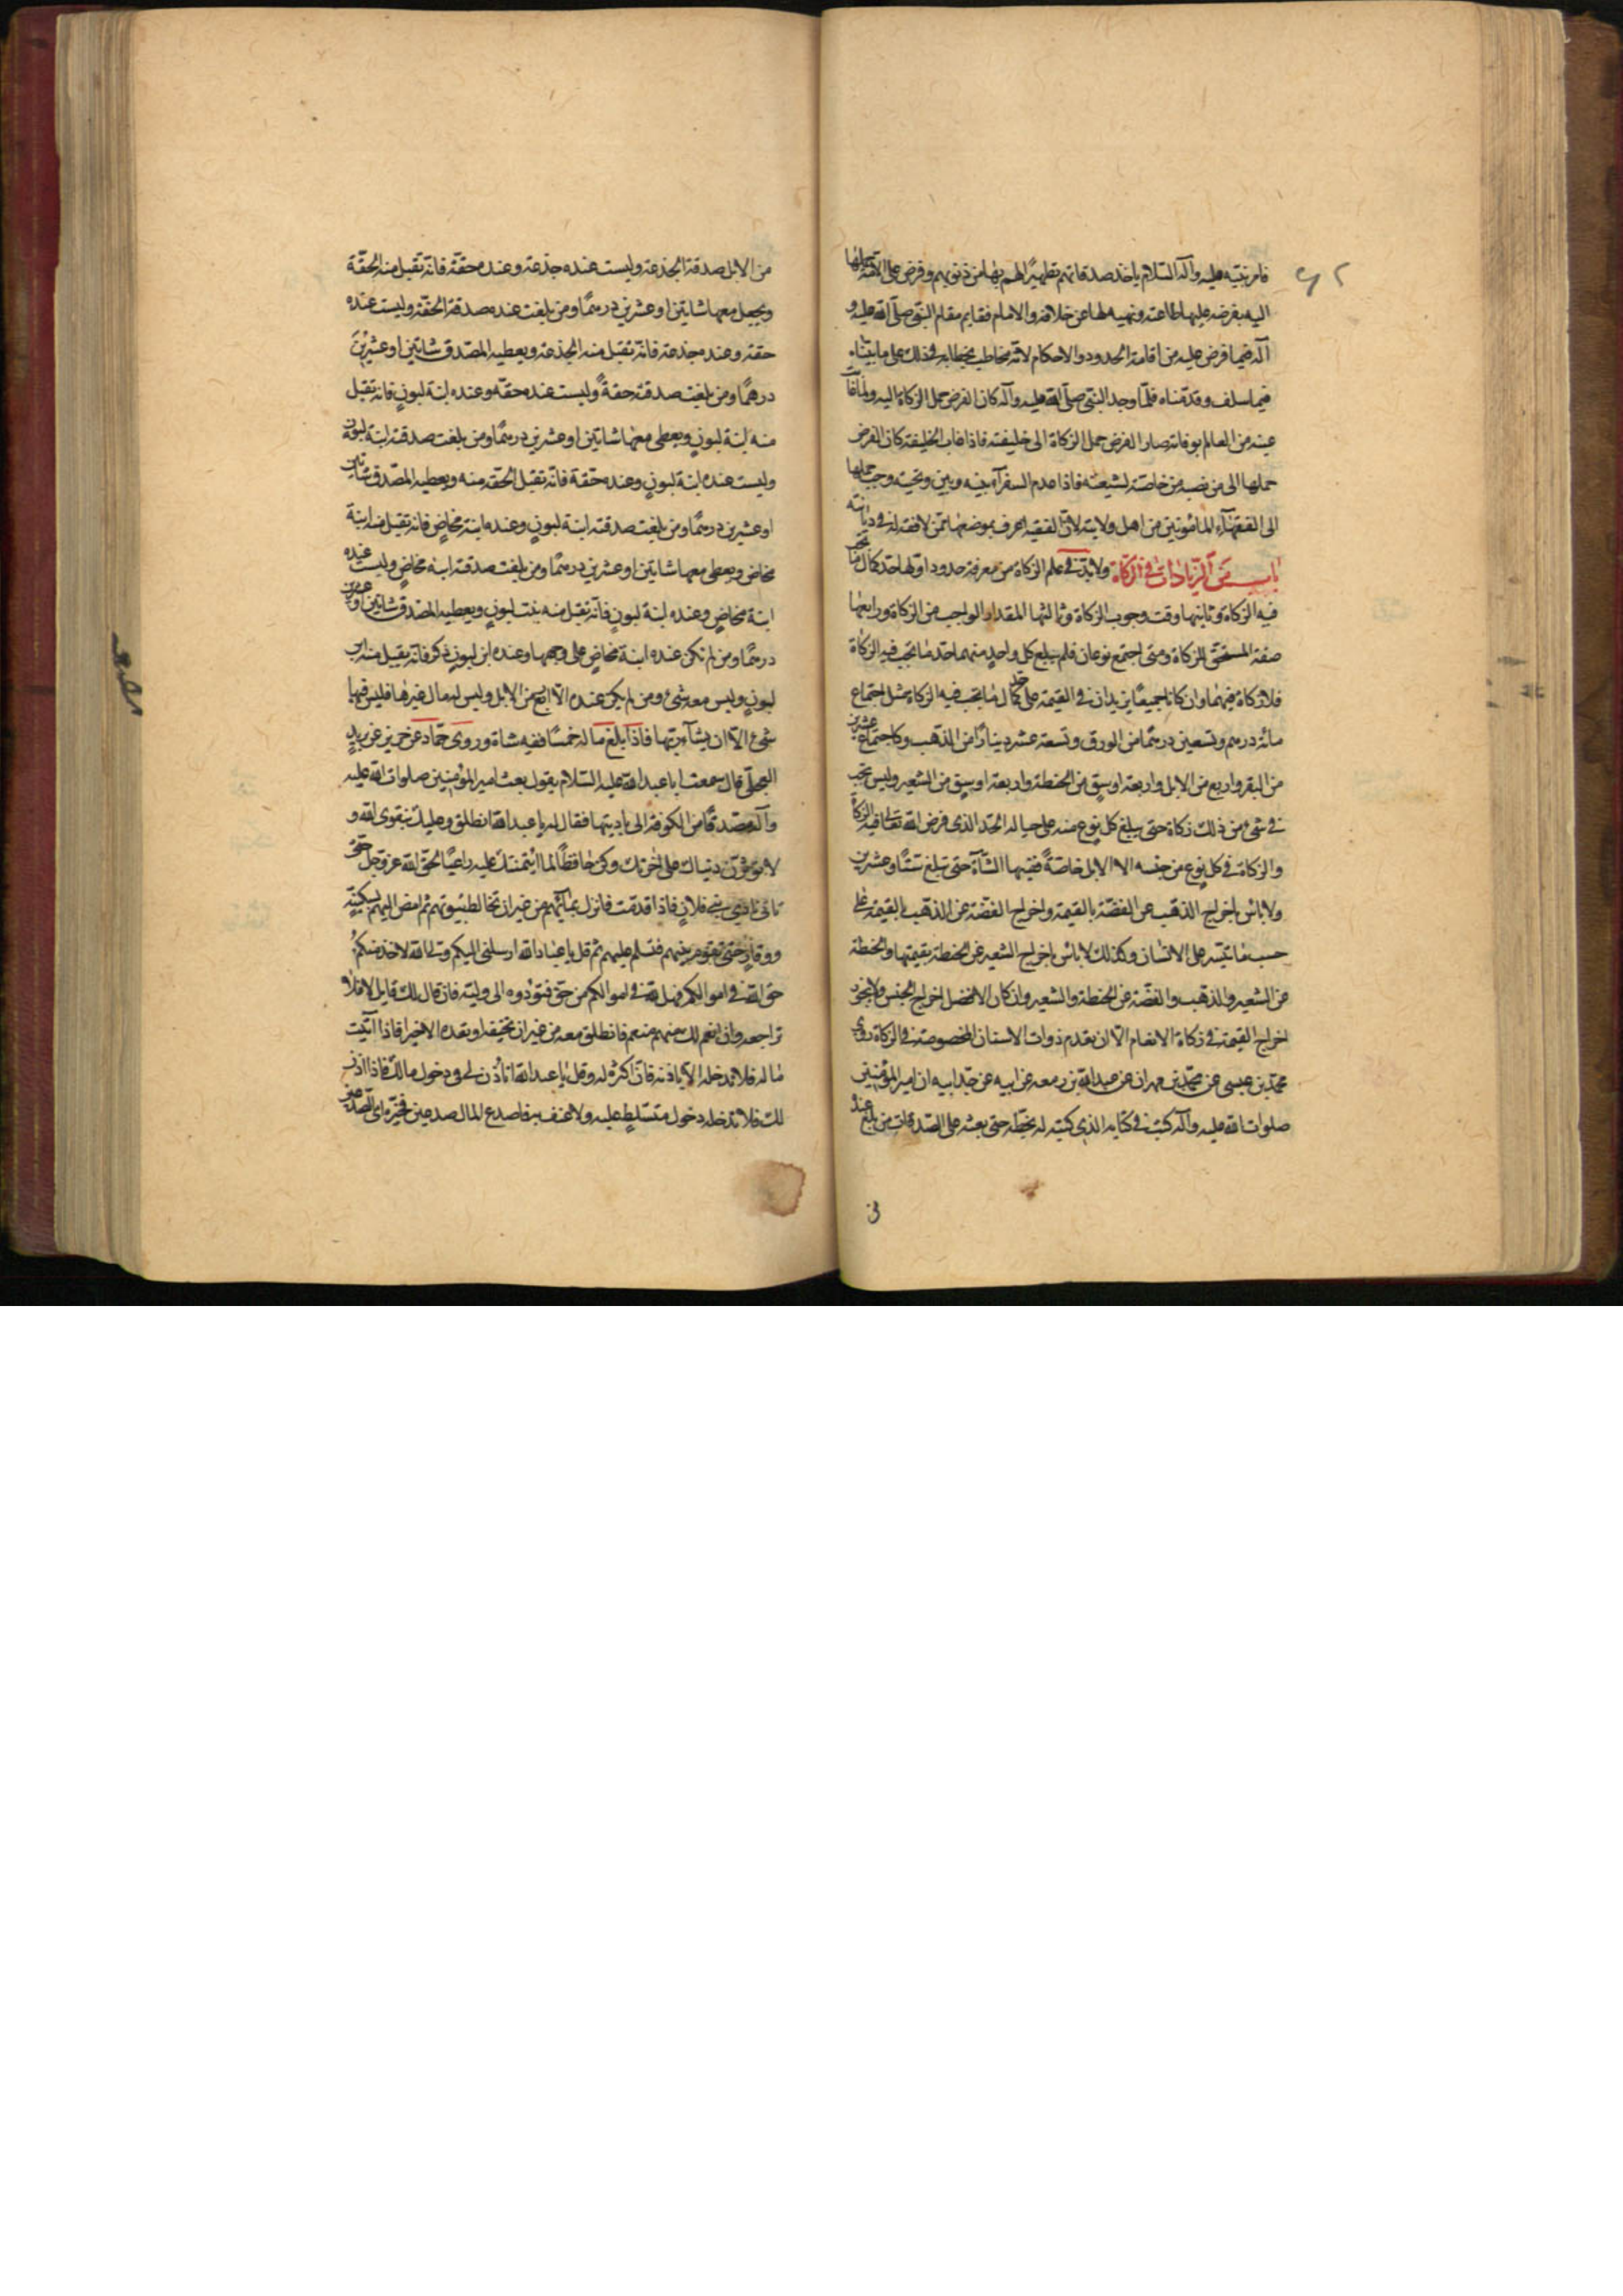 فامر نبيه عليه وآله السلام ياخذ صدقاتهم تطهيرًا لهم بها من ذنوبهم وفرض على الامة حملها
اليه بفرضه عليها طاعته ونهيه لها عن خلافه والامام فقايم مقام النبي صلى الله عليه و
آله فيما فرض عليه من اقامة الحدود والاحكام لانه مخاطب بخطابه في ذلك على ما بيناه
فيما سلف وقدمناه فلما وجد النبي صلى الله عليه وآله كان الفرض حمل الزكاة اليه ولما غاب
عينه من العالم بوفاته صار الفرض حمل الزكاة الى خليفته فاذا غاب الخليفة كان الفرض
حملها الى من نصبه من خاصته لشيعته فاذا عدم السفرآء بينه وبين رعيته وجب حملها
الى الفقهآء المامونين من اهل ولايته لان الفقيه اعرف بموضعها ممن لا فقه له في ديانته
باب من الزيادات في الزكاة ولا بد في علم الزكاة من معرفة حدود اولها حد كمال ما تجب
فيه الزكاة وثانيها وقت وجوب الزكاة وثالثها المقدار الواجب من الزكاة ورابعها
صفة المستحق للزكاة ومتى اجتمع نوعان فلم يبلغ كل واحد منهما حد ما تجب فيه الزكاة
فلا زكاة فيهما وان كانا جميعًا يزيدان في القيمة على حد كمال ما تجب فيه الزكاة مثل اجتماع
مائة درهم وتسعين درهمًا من الورق وتسعة عشر دينارًا من الذهب وكاجتماع عشرين
من البقر واربع من الابل واربعة اوسق من الحنطة واربعة اوسق من الشعير وليس تجب
في شئ من ذلك زكاة حتى يبلغ كل نوع منه على حياله الحد الذي فرض الله تعالى فيه الزكاة
والزكاة في كل نوع من جنسه الا الابل خاصةً ففيها الشآة حتى تبلغ ستًا وعشرين
ولا باس باخراج الذهب عن الفضة بالقيمة واخراج الفضة عن الذهب بالقيمة على
حسب ما تيسر على الانسان وكذلك لا باس باخراج الشعير عن الحنطة بقيمتها والحنطة
عن الشعير والذهب والفضة عن الحنطة والشعير وان كان الافضل اخراج الجنس ولا يجوز
اخراج القيمة في زكاة الانعام الا ان يعدم ذوات الاسنان المخصوصة في الزكاة روى
محمد بن عيسى عن محمد بن مهران عن عبدالله بن زمعة عن ابيه عن جد ابيه ان امير المؤمنين
صلوات الله عليه وآله كتب في كتابه الذي كتبه له بخطه حتى بعثه على الصدقات من بلغ عنده
من الابل صدقة الجذعة وليست عنده جذعة وعنده حقة فانه تقبل منه الحقة
ويجعل معها شاتين او عشرين درهمًا ومن بلغت عنده صدقة الحقة وليست عنده
حقة وعنده جذعة فانه تقبل منه الجذعة ويعطيه المصدق شاتين او عشرين
درهمًا ومن بلغت صدقته حقةً وليست عنده حقة وعنده ابنة لبون فانه تقبل
منه ابنة لبون ويعطى معها شاتين او عشرين درهمًا ومن بلغت صدقته ابنة لبون
وليست عنده ابنة لبون وعنده حقة فانه تقبل الحقة منه ويعطيه المصدق شاتين
او عشرين درهمًا ومن بلغت صدقته ابنة لبون وعنده ابنة مخاض فانه تقبل منه ابنة
مخاض ويعطى معها شاتين او عشرين درهمًا ومن بلغت صدقته ابنة مخاض وليست عنده
ابنة مخاض وعنده ابنة لبون فانه تقبل منه بنت لبون ويعطيه المصدق شاتين او عشرين
درهمًا ومن لم تكن عنده ابنة مخاض على وجهها وعنده ابن لبون ذكر فانه يقبل منه ابن
لبون وليس معه شئ ومن لم يكن عنده الا اربع من الابل وليس له مال غيرها فليس فيها
شئ الا ان يشآء ربها فاذا بلغ ماله خمسًا ففيه شاة وروى حماد عن حريز عن بريد
البجلي قال سمعت ابا عبدالله عليه السلام يقول بعث امير المؤمنين صلوات الله عليه
وآله مصدقًا من الكوفة الى باديتها فقال له يا عبدالله انطلق وعليك بتقوى الله و
لا تؤثرن دنياك على اخرتك وكن حافظًا لما ائتمنتك عليه راعيًا لحق الله عز وجل حتى
تاتي نادي بني فلان فاذا قدمت فانزل بمائهم من غير ان تخالط بيوتهم ثم امض اليهم بسكينة
ووقار حتى تقوم بينهم فتسلم عليهم ثم قل يا عباد الله ارسلني اليكم ولي الله لاخذ منكم
حق الله في اموالكم فهل لله في اموالكم من حق فتؤدوه الى وليه فان قال لك قايل لا فلا
تراجعه وان انعم لك منهم منعم فانطلق معه من غير ان تخيفه او تعده الا خيرا فاذا اتيت
ماله فلا تدخله الا باذنه فان اكثره له وقل يا عبدالله اتاذن لي في دخول مالك فاذا اذن
لك فلا تدخله دخول متسلط عليه ولا عنف به فاصدع المال صدعين فخيره اي الصدعين